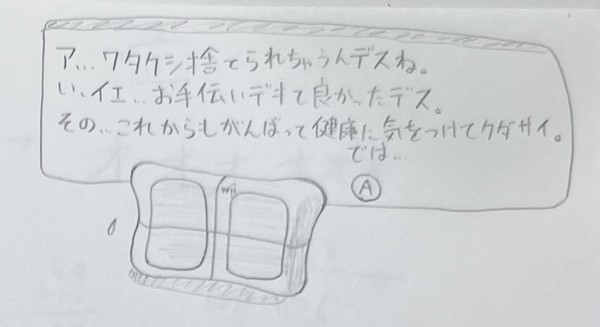 ア…ワタクシ捨てられちゃうんデスね。
い、イエ…お手伝いデキて良かったデス。
その…これからもがんばって健康に気をつけてクダサイ。
では…
Ⓐ
Wii